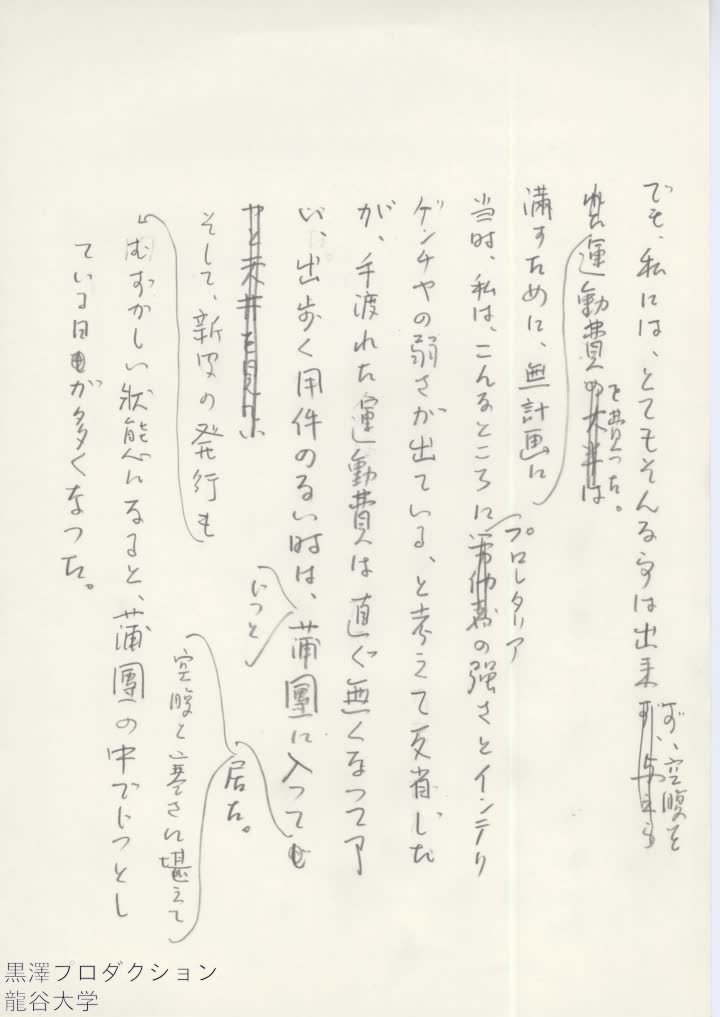 でも、私には、とてもそんな事は出来
ず、空腹を
運動費
を費った。
の大半は
満すために、無計画に
当時、私は、こんなところに
プロレタリア
の強さとインテリ
ゲンチヤの弱さが出ている、と考えて反省した
が、手渡れた運動費は直ぐ無くなって了
い、出歩く用件のない時は、蒲團に入って
じっと
居た。
やと天井を見てい
そして、新聞の発行も
空腹と寒さに堪えて
むずかしい状態になると、蒲團の中でじっとし
ている日が多くなった。
黒澤プロダクション
龍谷大学